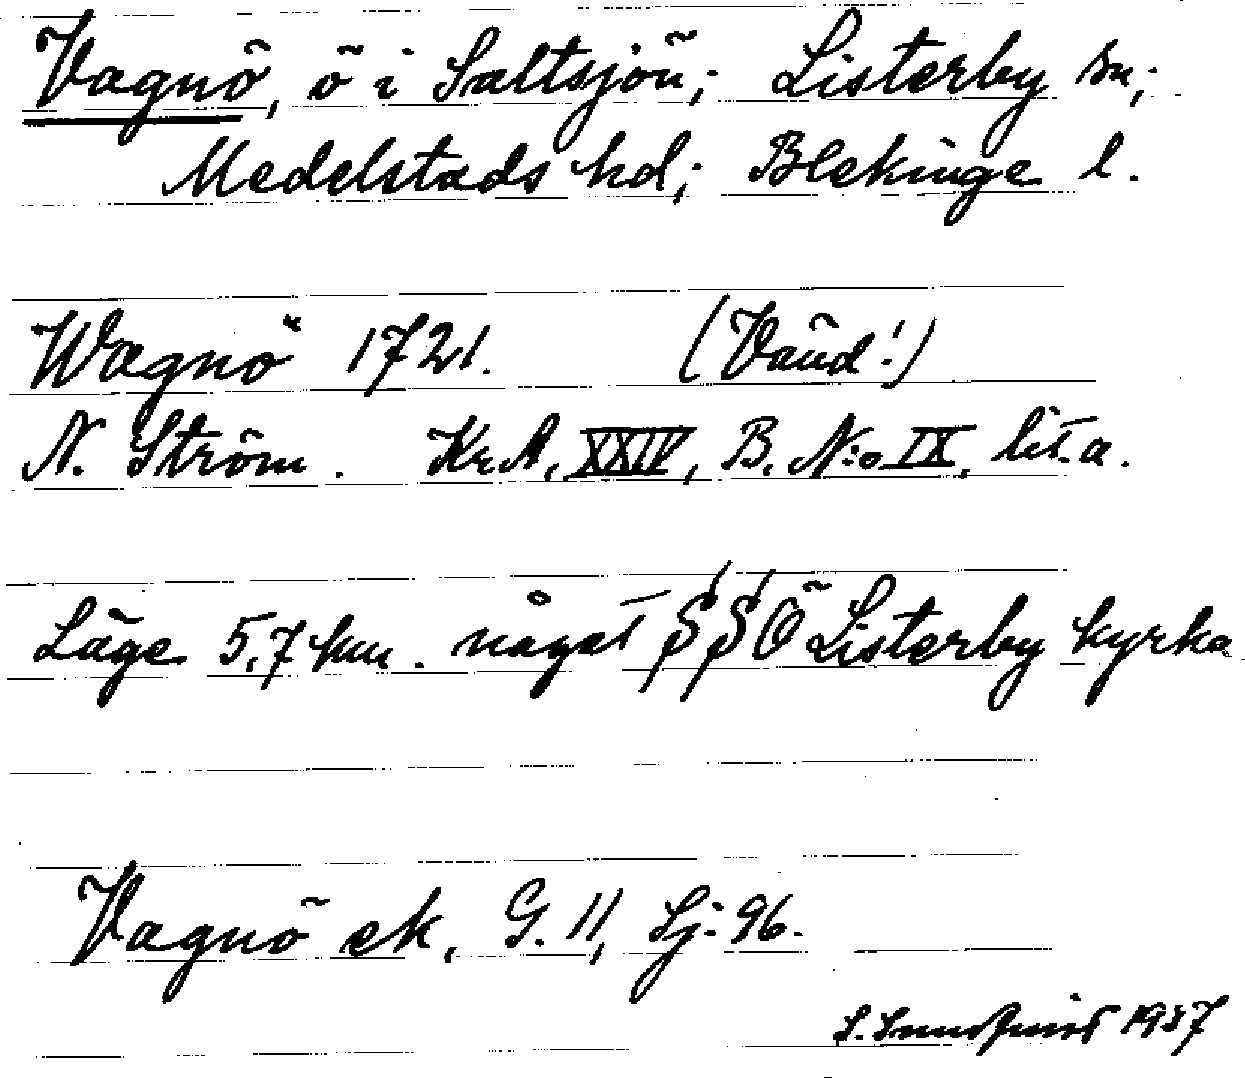 Vagnö, ö i Saltsjön; Listerby sn;
Medelstads hd; Blekinge l.
Wagnö 1721. (Vänd!)
N. Ström. Kr.A. XXIV, B. N:o IX, lit. a.
Läge 5,7 km. något SSÖ Listerby kyrka
Vagnö ek, G. 11, Sj: 96.
1937